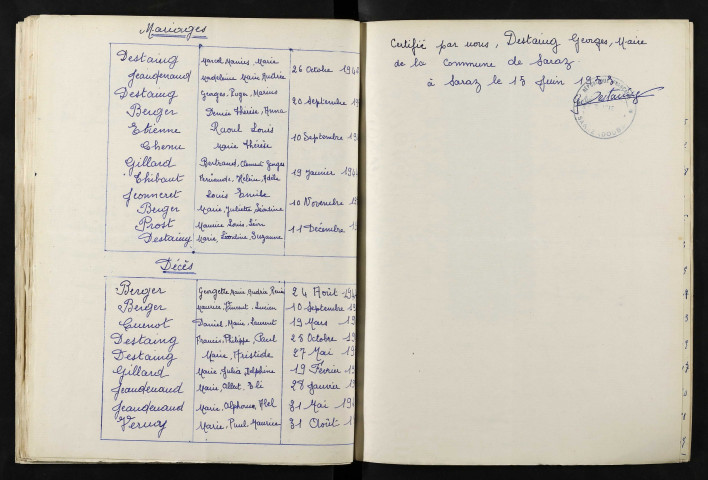 Mariages
Destaing Marcel Marius, Marie
26 Octobre 194
Jeandenand Madeleine Marie Andrée
Destaing Georges, Roger, Marius
20 Septembre 19
Berger Denise Thérèse, Anna
Etienne Raoul Louis
10 Septembre 19
Chenu Marie Thérèse
Gillard Bertrand, Clément Georges
19 Janvier 194
Thibaut Hélène, Adèle
Jeonneret Louis Emile
10 Novembre 19
Berger Marie, Juliette, Léontine
Prost Maurice Louis, Léon
11 Décembre 19
Destaing Marie, Léontine, Suzanne
Décès
Berger Georgette Marie Andrée 24 Août 194
Berger Maurice, Vincent, Lucien 10 Septembre 19
Cuenot Daniel, Marie, Laurent 19 Mars 19
Destaing Francis, Philippe, Paul 28 Octobre 19
Destaing Marie, Aristide 27 Mai 19
Gillard Marie, Julia, Delphine 19 Février 19
Jeandenand Marie, Albert, Eli 28 Janvier 19
Jeandenand Marie, Alphonse, Abel 31 Mai 194
Vernoy Marie, Paul Maurice 31 Août 1
Certifié par nous, Destaing Georges, Maire
de la Commune de Saraz
à Saraz le 15 Juin 1953